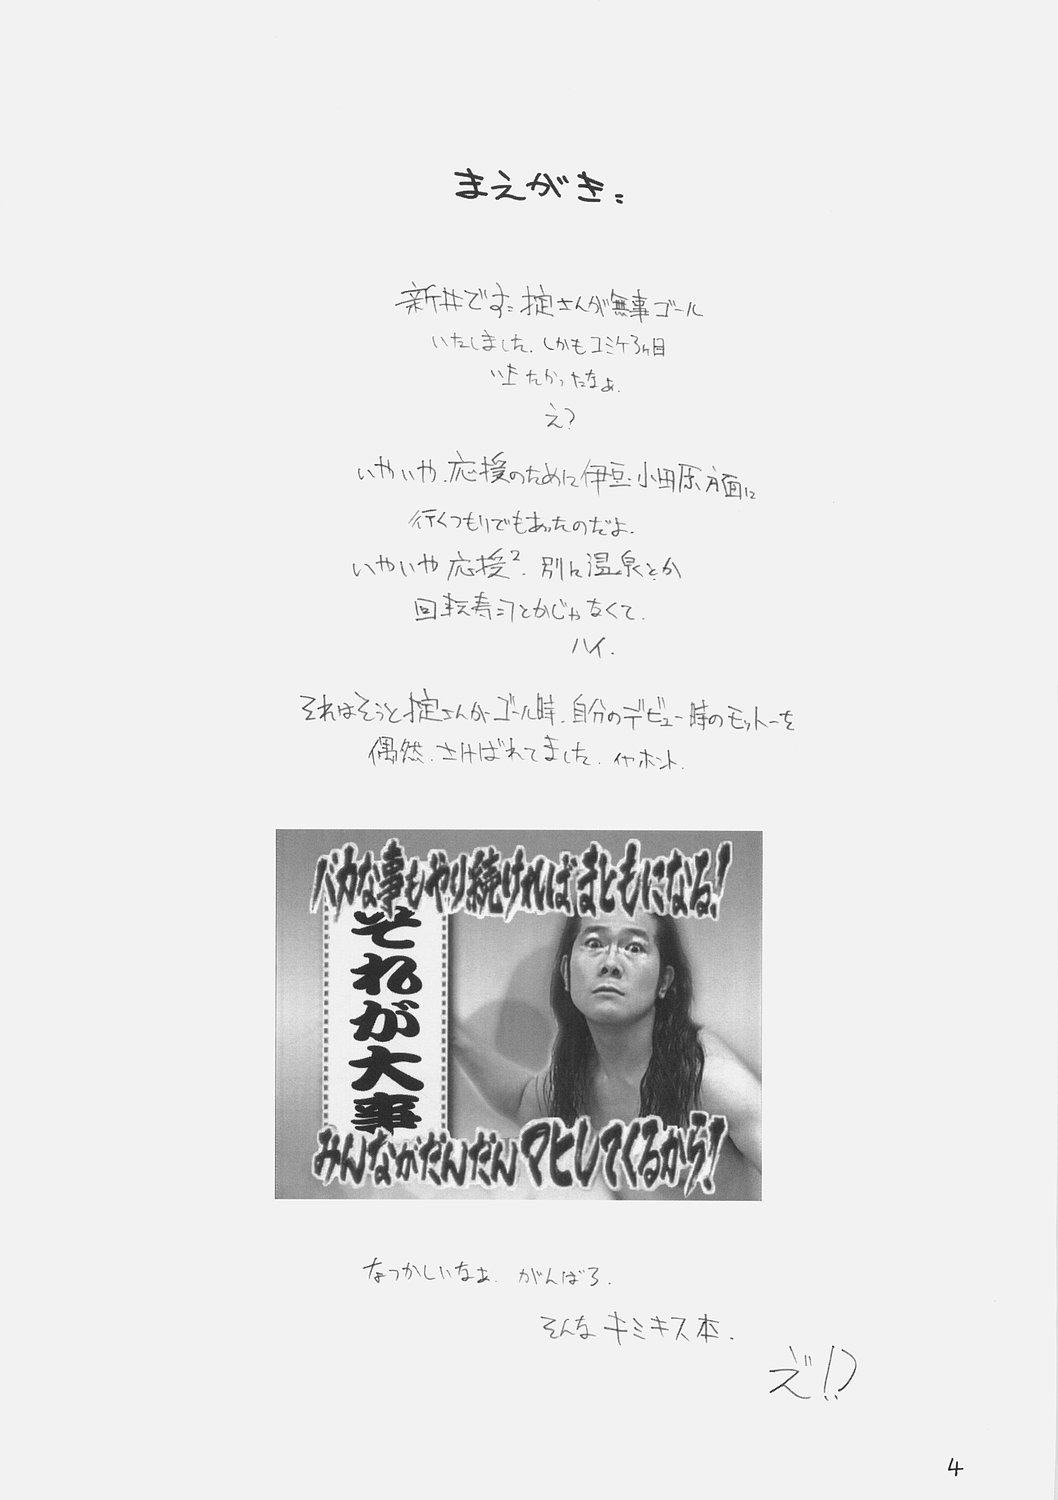 まえがき:
新井です。掟さんが無事ゴール
いたしました。しかもコミケ3ヶ目
いきたかったなぁ。
え?
いやいや、応援のために伊豆・小田原方面に
行くつもりでもあったのだよ。
いやいや応援²。別に温泉とか
回転寿司とかじゃなくて。
ハイ.
それはそうと掟さんがゴール時、自分のデビュー時のモットーを
偶然、さけばれてました。イヤホント.
バカな事もやり続ければまともになる!
それが大事
みんながだんだんマヒしてくるから!
なつかしいなぁ. がんばろ.
そんなキミキス本.
え゛!?
4